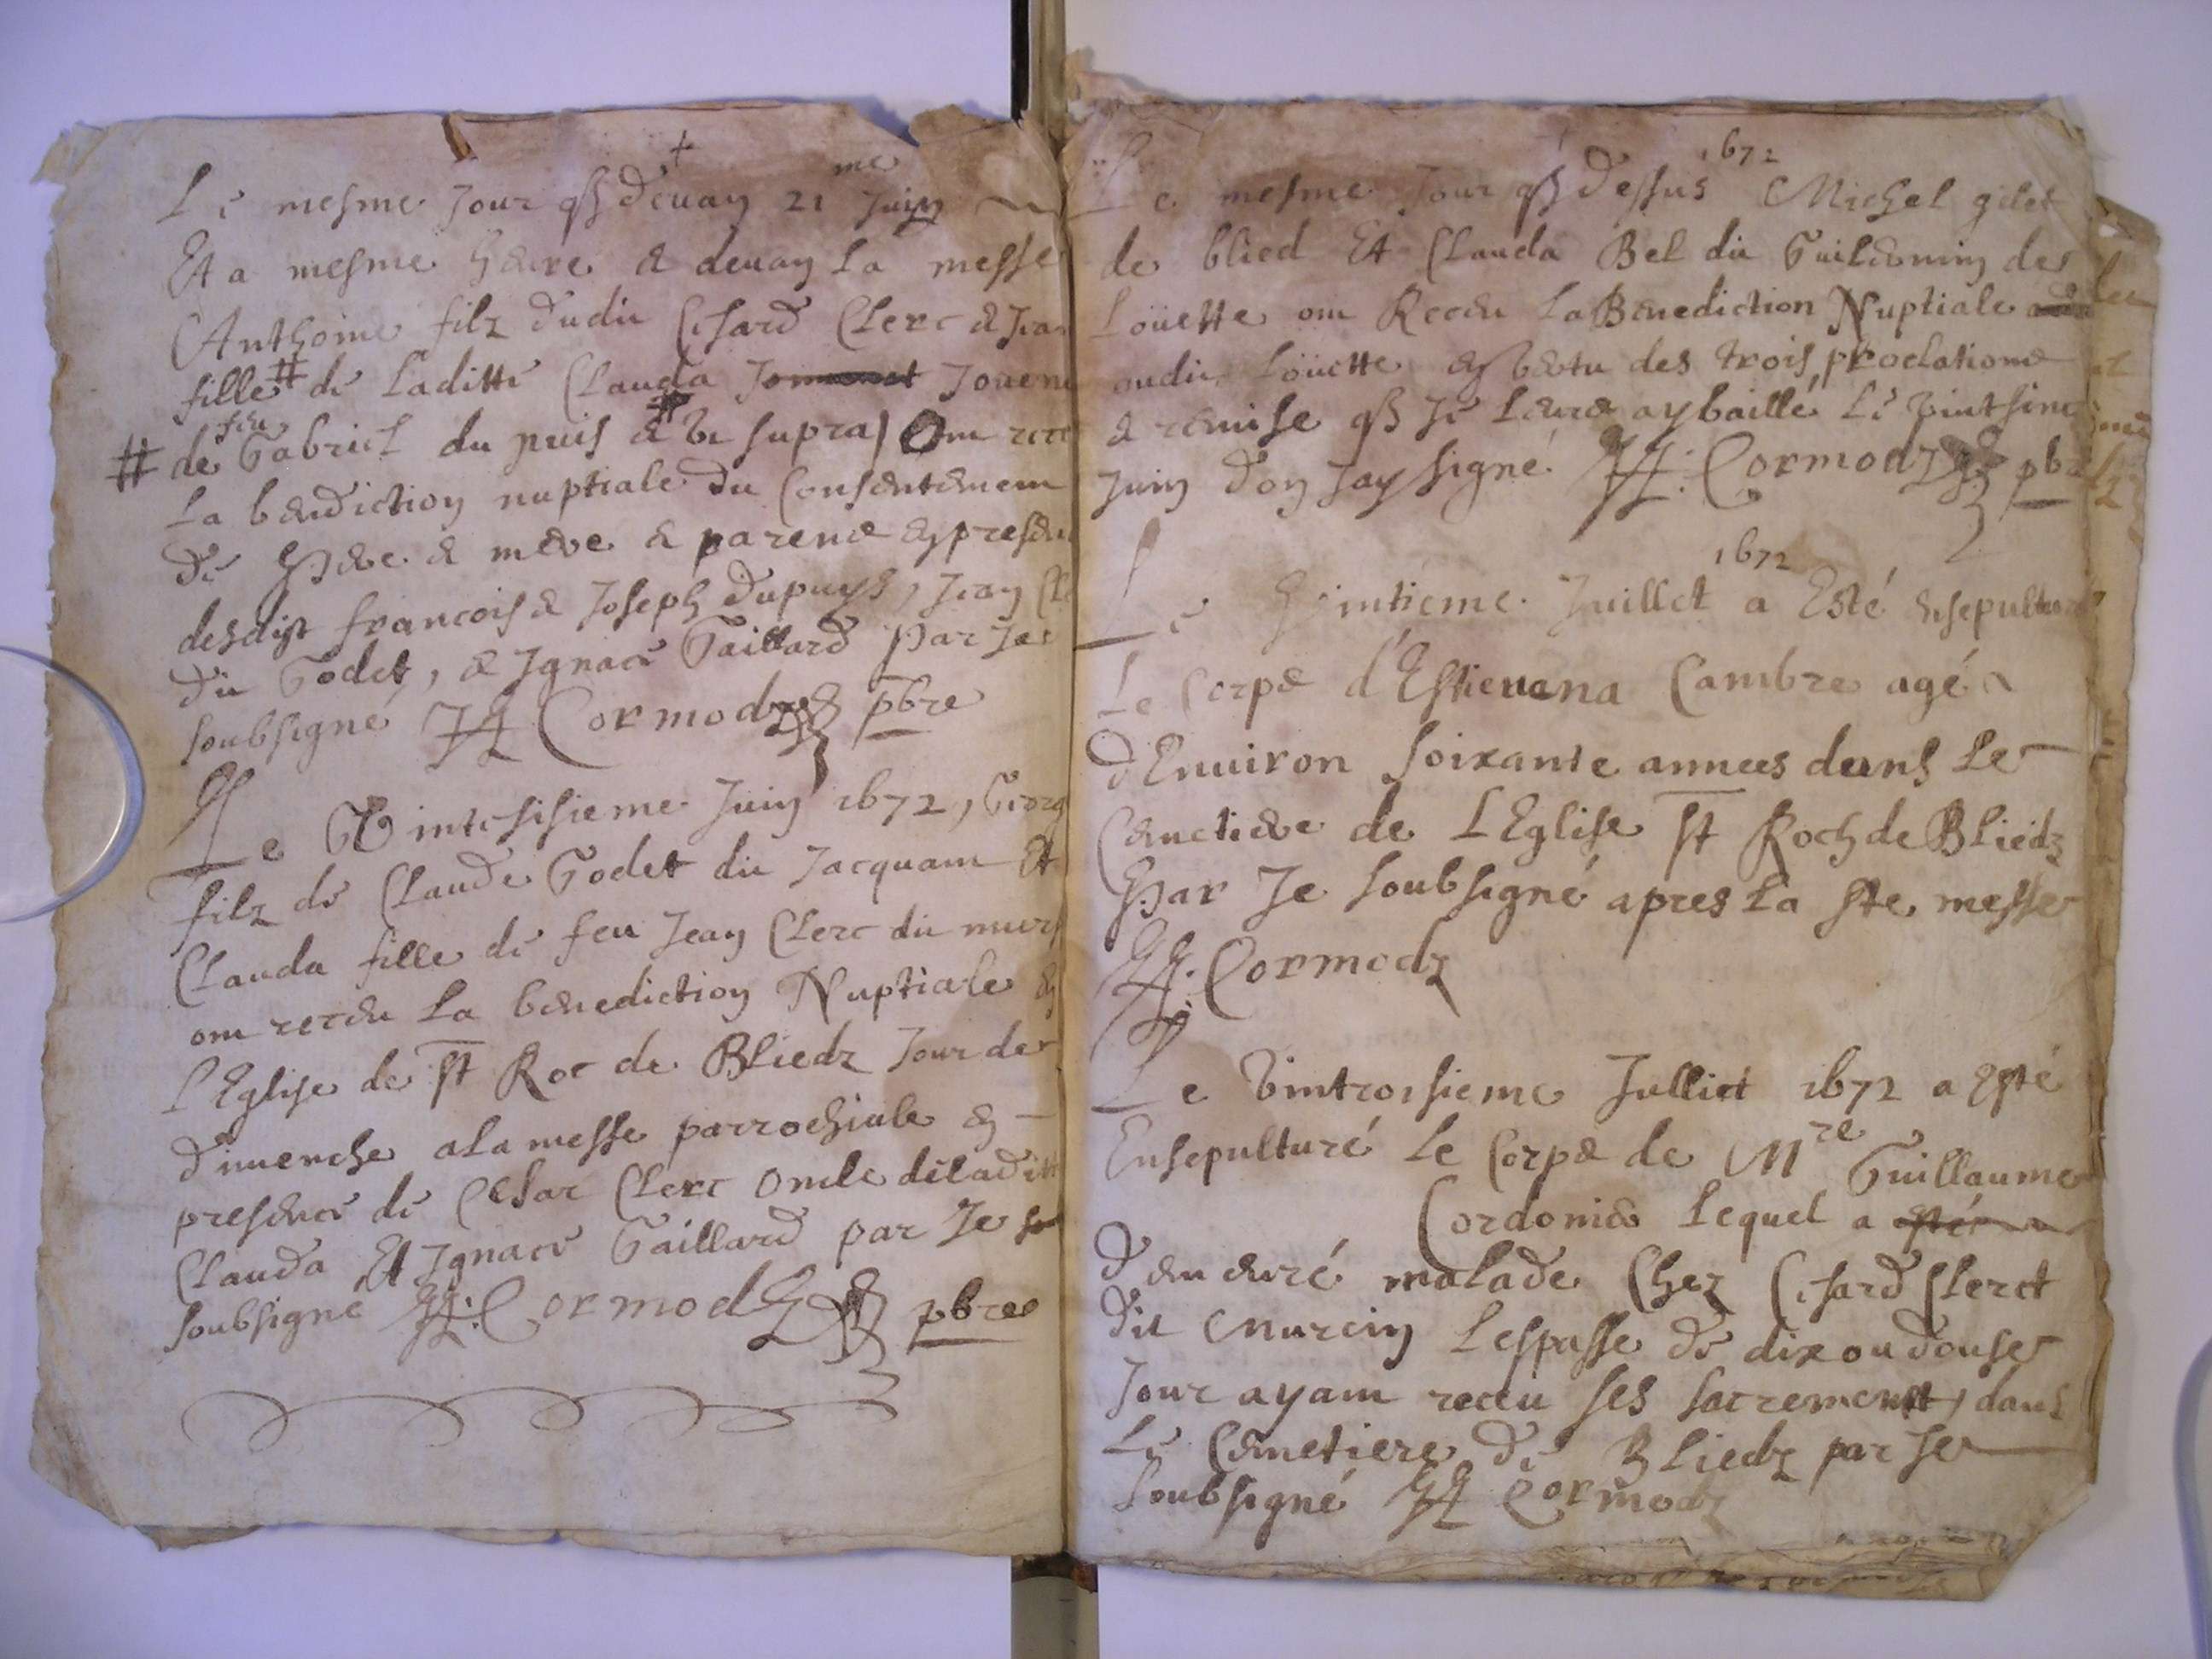 Le mesme Jour q̃ deuan 21 me Juin
Et a mesme heure & deuan la messe
Anthoine filz dudit Cesard Clerc & Jea
fille # de laditte Clauda Jouen
# de feu Gabriel du puis & Vt supra) Ont rece
la benediction nuptiale du Consentement
de Pere & mere & parens en presen
desdist francois & Joseph dupuys, Jean Cl
dit Godet, & Ignace Gaillard Par Je
soubsigné Cormodz pbre
Le Vintesisieme Juin 1672, Georg
filz de Claude Godet dit Jacquam Et
Clauda fille de feu Jean Clerc dit mur
ont receu la benediction Nuptiale en
l'Eglise de st Roc de Bliedz Jour de
dimenche a la messe parrochiale en
presence de Cesar Clerc oncle de ladit
Clauda Et Ignace Gaillard par Je so
soubsigné Cormodz pbre
1672
Le mesme Jour q̃ dessus Michel gilet
de blied Et Clauda Bel dit Guilermin de
Loüette ont Receu la Benediction Nuptiale
audit Loüette en vertu des trois proclations
& remise q̃ Je leurs ay baillé le vintsinc
Juin d'on Jay signé Cormodz pbr
1672
Le Vintieme Juillet a Esté ensepulturé
Le Corps d'Estieuena Cambre agé
d'Enuiron soixante annees dans Le
Cemetiere de LEglise st Roch de Bliedz
Par Je soubsigné apres La ste messe
Cormodz
Le vintroisieme Julliet 1672 a Esté
Ensepulturé Le Corps de Mre Guillaume
Cordonier Lequel a
demeuré malade Chez Cesard Clerct
dit Murcin Lespasse de dix ou douse
Jour ayant receu ses sacrements, dans
Le Cemetiere de Bliedz par Je
soubsigné Cormodz